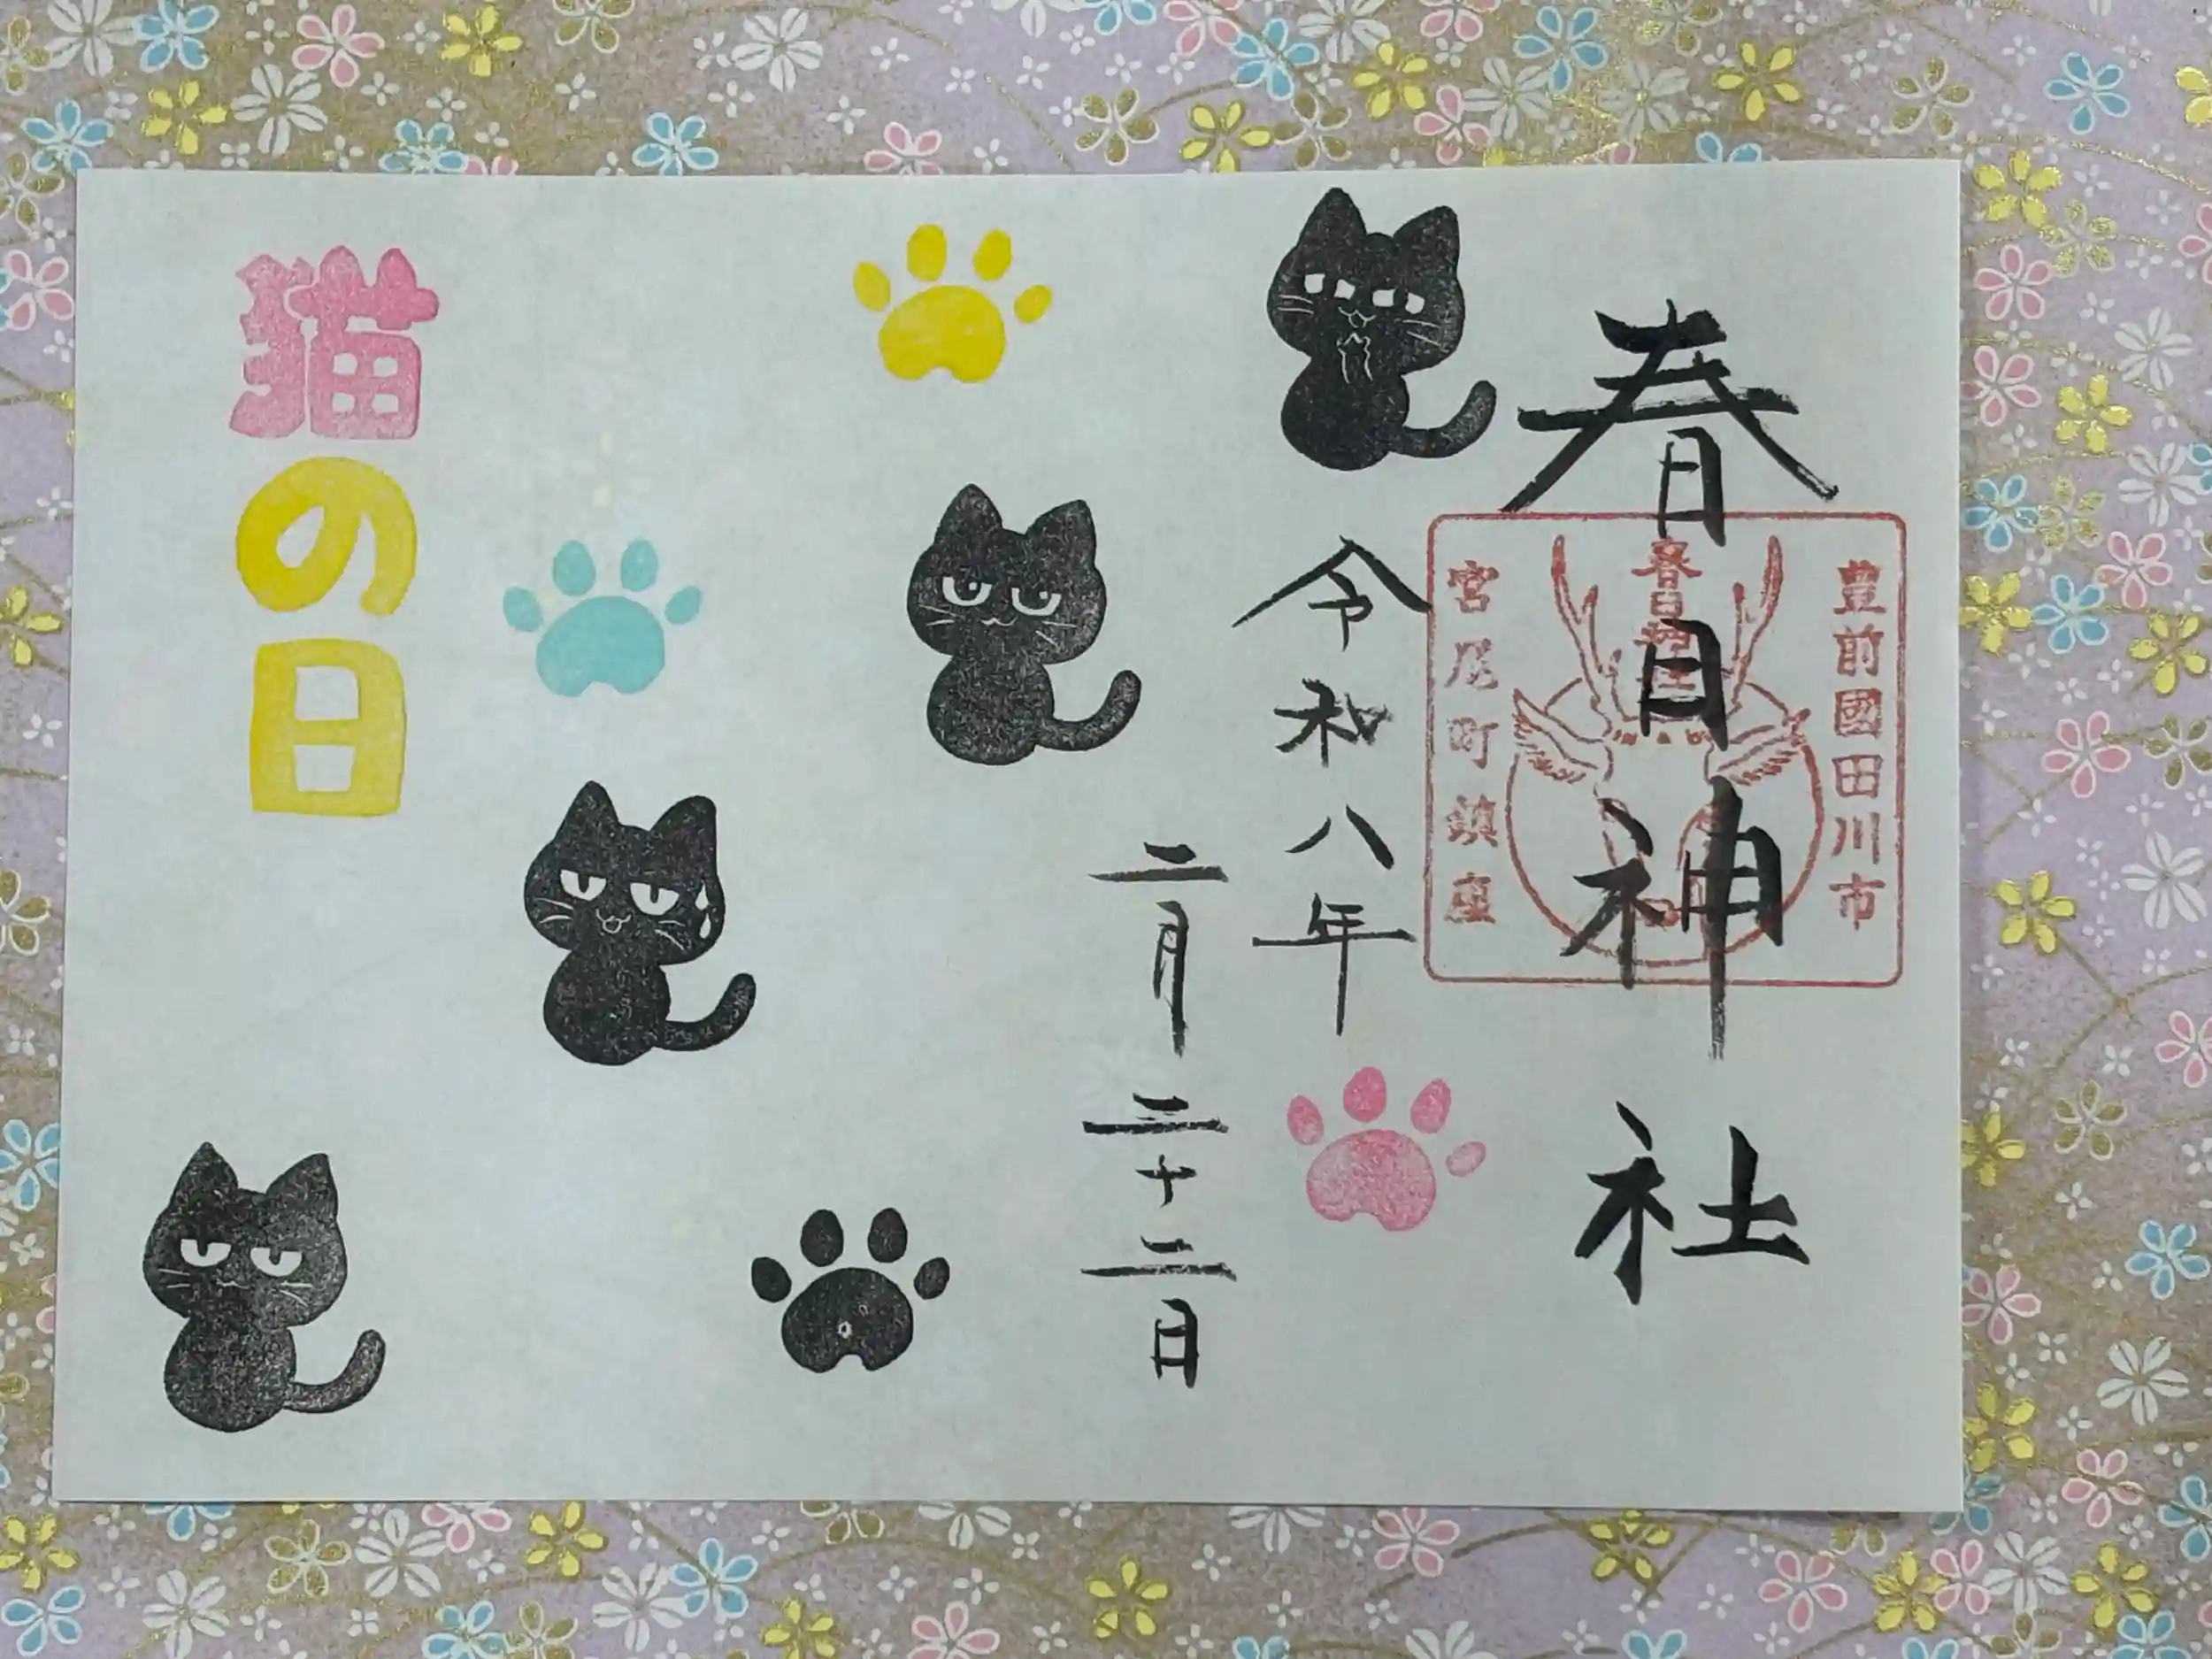 春日神社
豊前國田川市
春日神社
宮尾町鎮座
令和八年
二月二十二日
猫の日